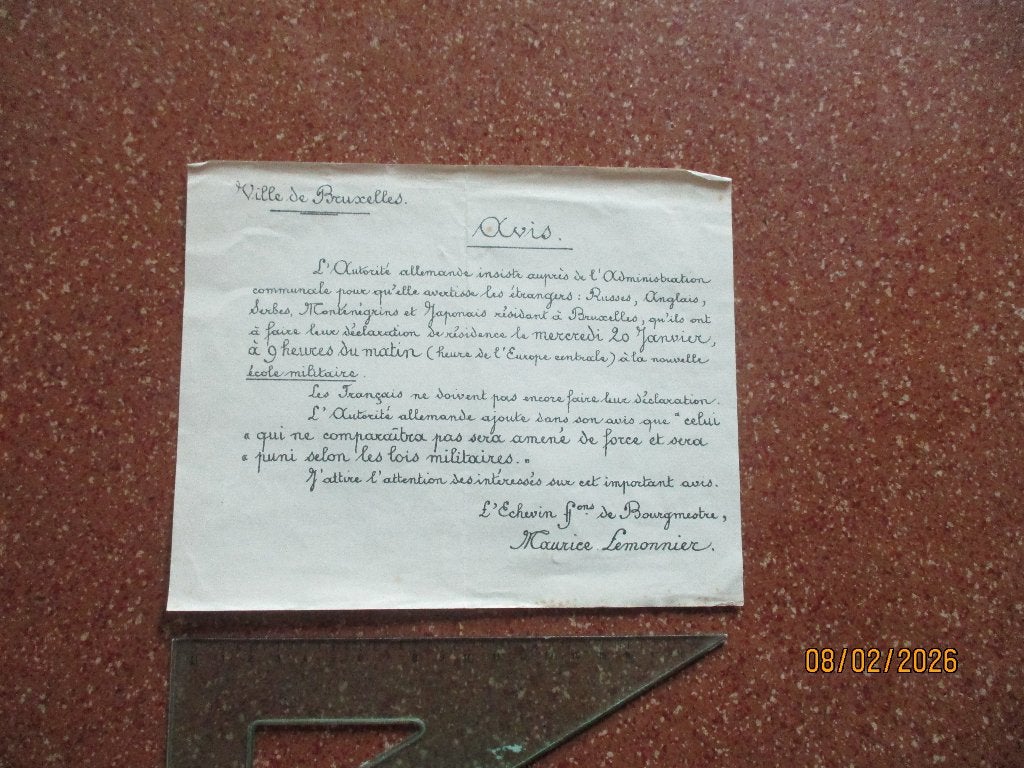 Ville de Bruxelles.
Avis.
L'Autorité allemande insiste auprès de l'Administration
communale pour qu'elle avertisse les étrangers : Russes, Anglais,
Serbes, Monténégrins et Japonais résidant à Bruxelles, qu'ils ont
à faire leur déclaration de résidence le mercredi 20 Janvier,
à 9 heures du matin (heure de l'Europe centrale) à la nouvelle
école militaire.
Les Français ne doivent pas encore faire leur déclaration.
L'Autorité allemande ajoute dans son avis que "celui
« qui ne comparaîtra pas sera amené de force et sera
« puni selon les lois militaires. "
J'attire l'attention des intéressés sur cet important avis.
L'Echevin ff.ons de Bourgmestre,
Maurice Lemonnier.
08/02/2026